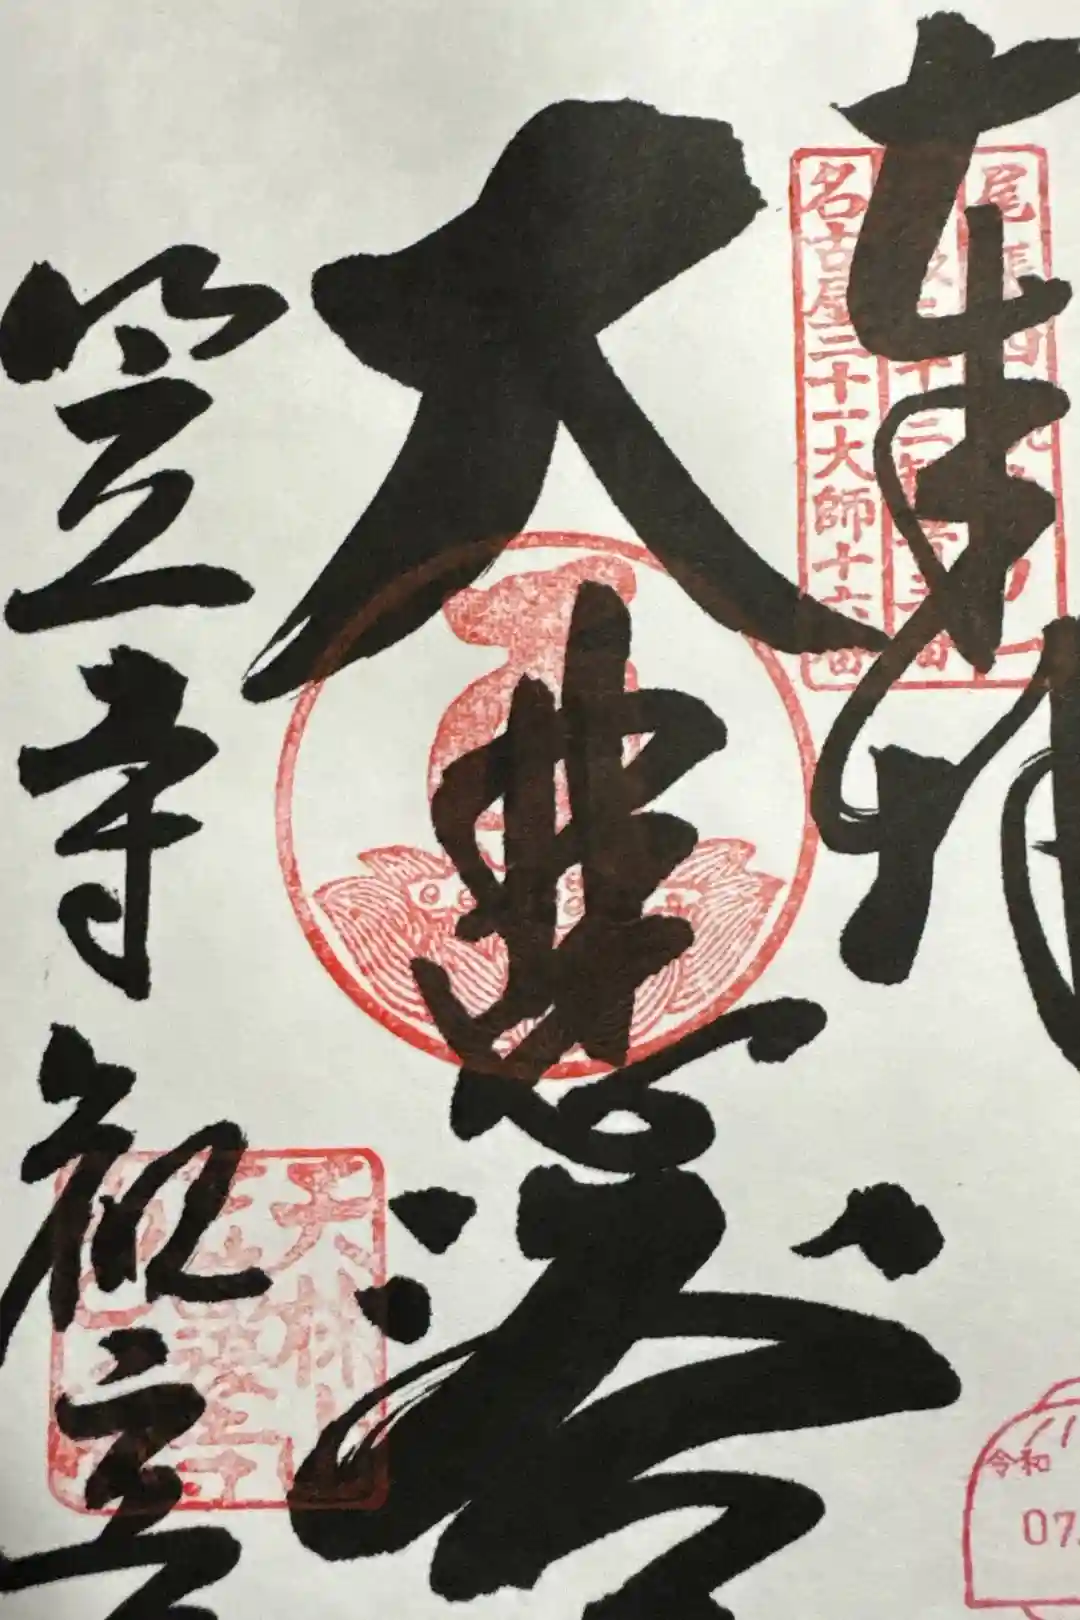 奉拝
尾張四観音の一
十二観音
名古屋二十一大師十六番
大悲殿
笠寺観音
天林山
笠覆寺
令和
07